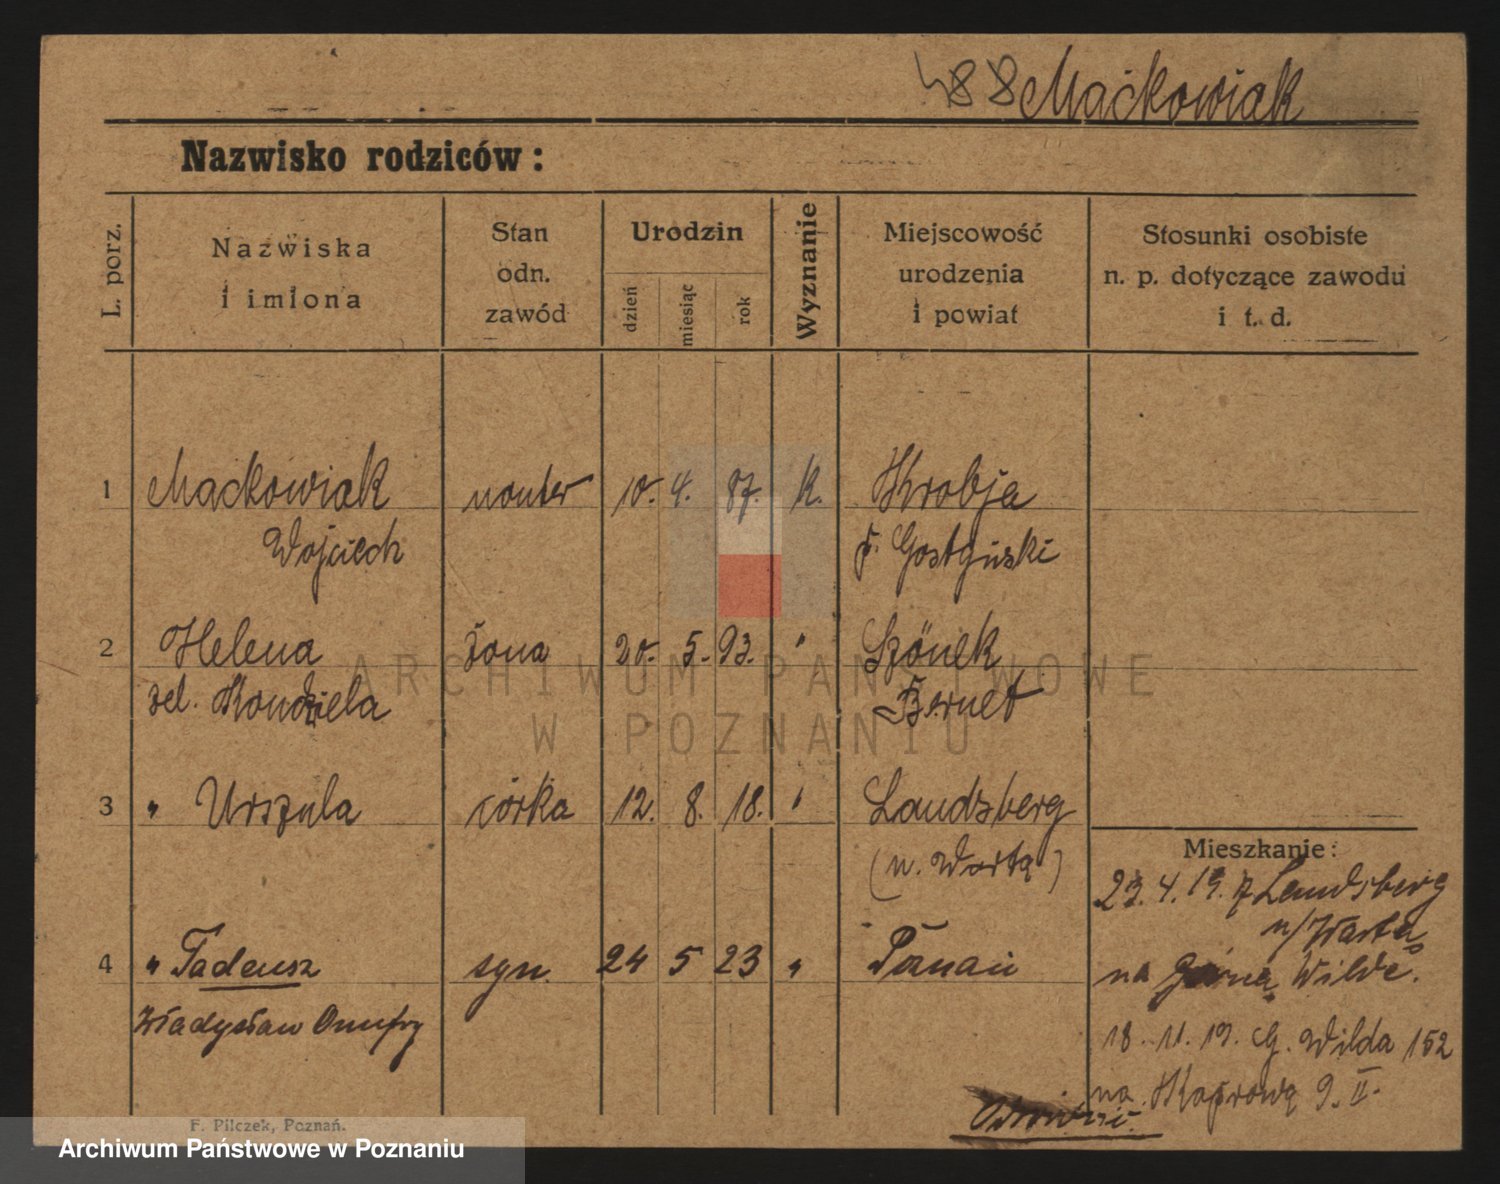 488 Maćkowiak
Nazwisko rodziców:
L. porz.
Nazwiska
i imiona
Stan
odn.
zawód
Urodzin
dzień
miesiąc
rok
Wyznanie
Miejscowość
urodzenia
i powiat
Stosunki osobiste
n. p. dotyczące zawodu
i t. d.
1 Maćkowiak monter 10. 4. 87. k. Krobja
Wojciech p. Gostyński
2 Helena żona 20. 5. 93. " Szönek
zel. Kondziela Bernet
3 " Urszula córka 12. 8. 18. " Landsberg
(n. Wartą)
Mieszkanie:
23. 4. 19. z Landsberg
n/Wartą
4 " Tadeusz syn. 24 5 23 " Poznań
na Górną Wildę.
Władysław Onufry
18. 11. 19. G. Wilda 152
na Kaprową 9. II.
F. Pilczek, Poznań.
ARCHIWUM PAŃSTWOWE
W POZNANIU
Archiwum Państwowe w Poznaniu